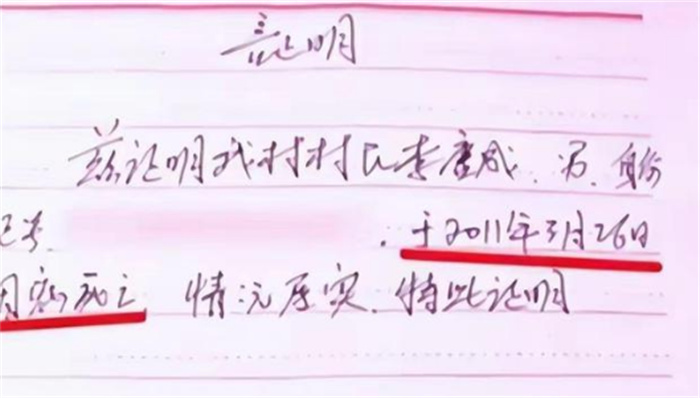 证明
兹证明我村村民李产成、男、身份
证号 ，于2011年3月26日
因病死亡 情况属实，特此证明